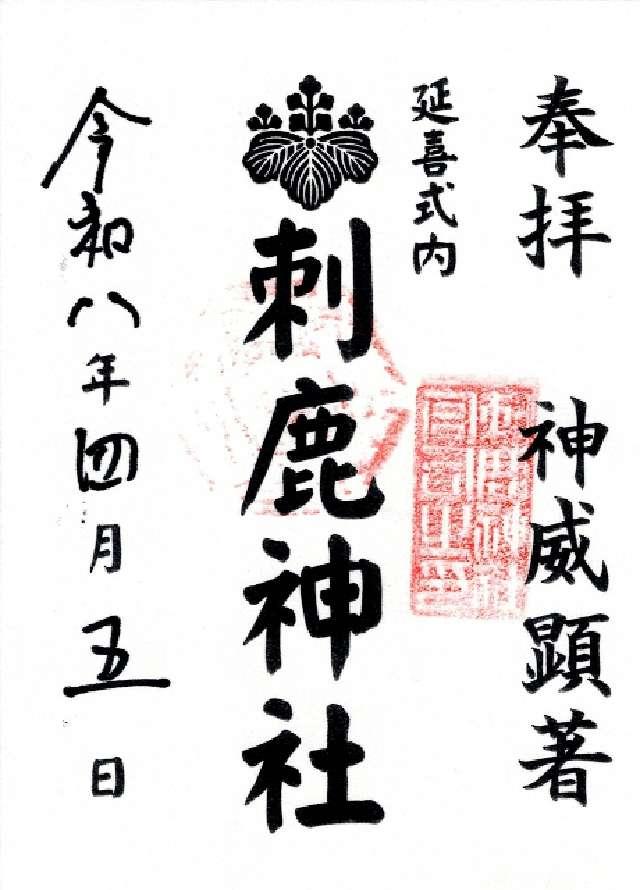 奉拝　神威顕著
延喜式内
刺鹿神社
令和八年四月五日